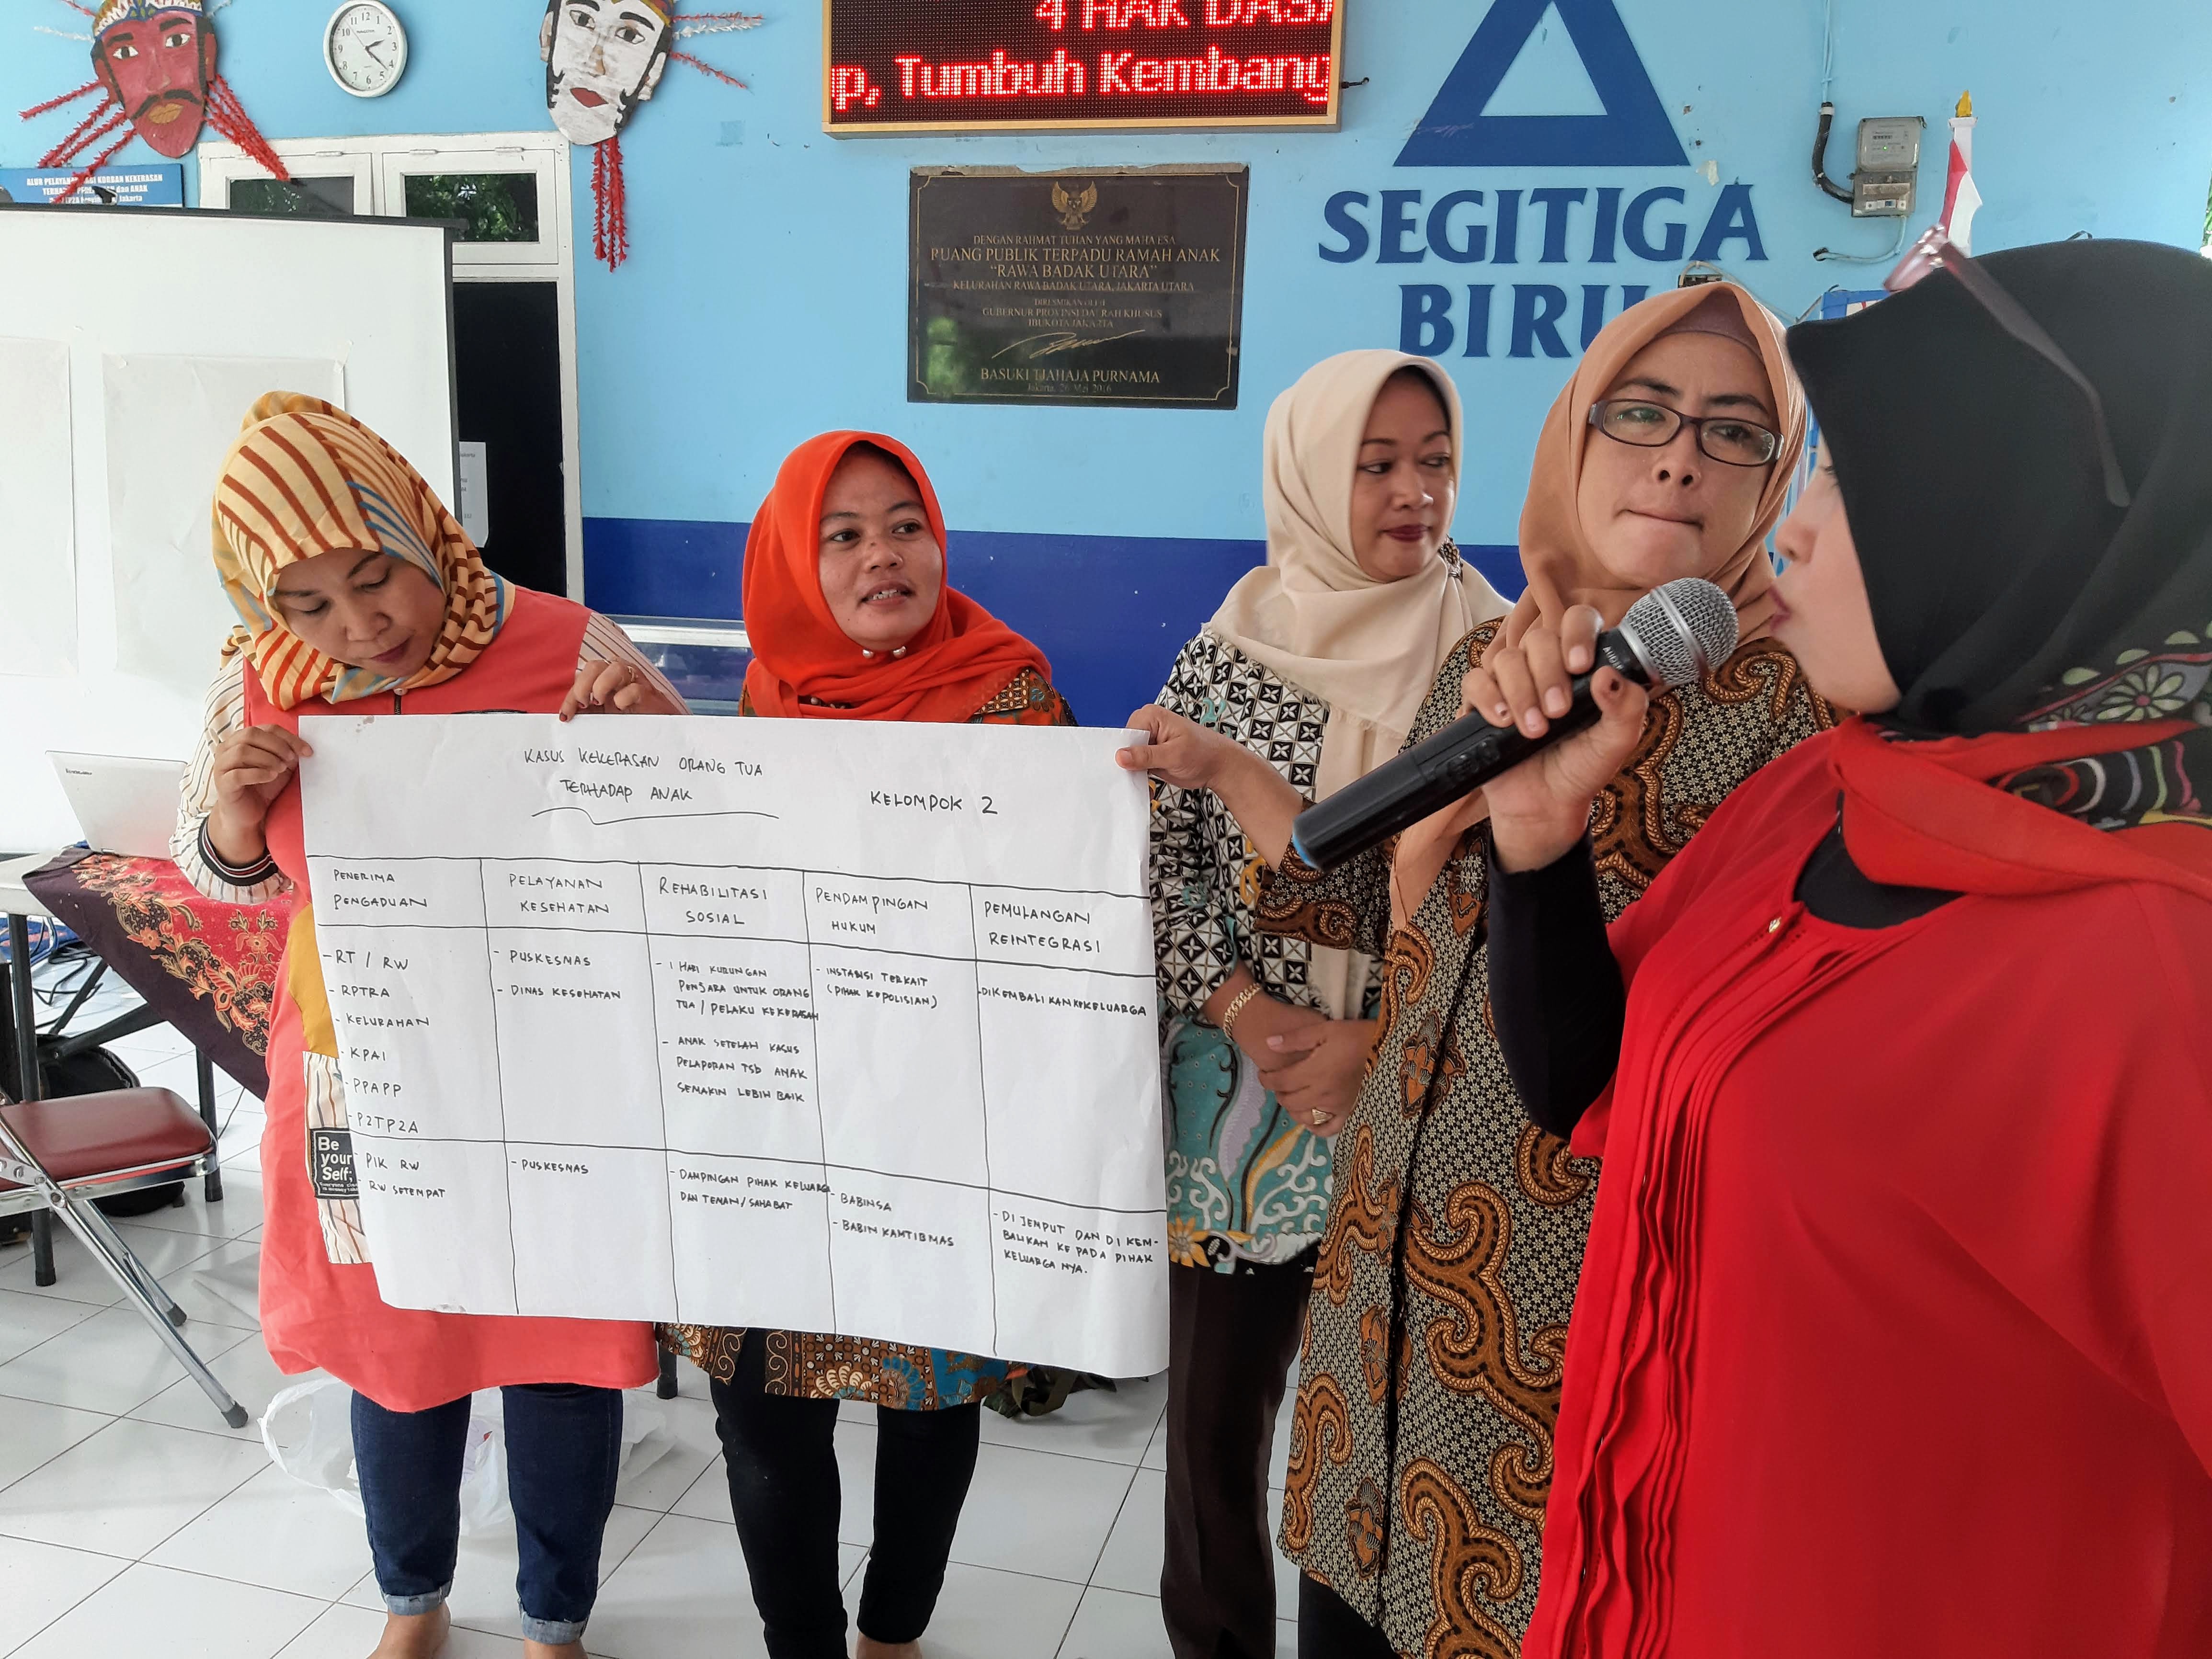 4 HAK DASA
p, Tumbuh Kembang
ALUR PELAYANAN BAGI KORBAN KEKERASAN
dan ANAK
Jakarta
SEGITIGA
BIRU
DENGAN RAHMAT TUHAN YANG MAHA ESA
RUANG PUBLIK TERPADU RAMAH ANAK
"RAWA BADAK UTARA"
KELURAHAN RAWA BADAK UTARA, JAKARTA UTARA
DIRESMIKAN OLEH
GUBERNUR PROVINSI DAERAH KHUSUS
IBUKOTA JAKARTA
BASUKI TJAHAJA PURNAMA
Jakarta, 26 Mei 2016
KASUS KEKERASAN ORANG TUA
TERHADAP ANAK
KELOMPOK 2
PENERIMA
PENGADUAN
PELAYANAN
KESEHATAN
REHABILITASI
SOSIAL
PENDAMPINGAN
HUKUM
PEMULANGAN
REINTEGRASI
- RT / RW
- RPTRA
- KELURAHAN
- KPAI
- PPAPP
- P2TP2A
- PUSKESMAS
- DINAS KESEHATAN
- 1 HARI KURUNGAN
PENJARA UNTUK ORANG
TUA / PELAKU KEKERASAN
- ANAK SETELAH KASUS
PELAPORAN TSb ANAK
SEMAKIN LEBIH BAIK
- INSTANSI TERKAIT
(PIHAK KEPOLISIAN)
- DIKEMBALIKAN KEKELUARGA
- PIK RW
- RW SETEMPAT
- PUSKESMAS
- DAMPINGAN PIHAK KELUARGA
DAN TEMAN / SAHABAT
- BABINSA
- BABIN KAMTIBMAS
- DI JEMPUT DAN DI KEM-
BALIKAN KEPADA PIHAK
KELUARGA NYA.
Be
your
Self;